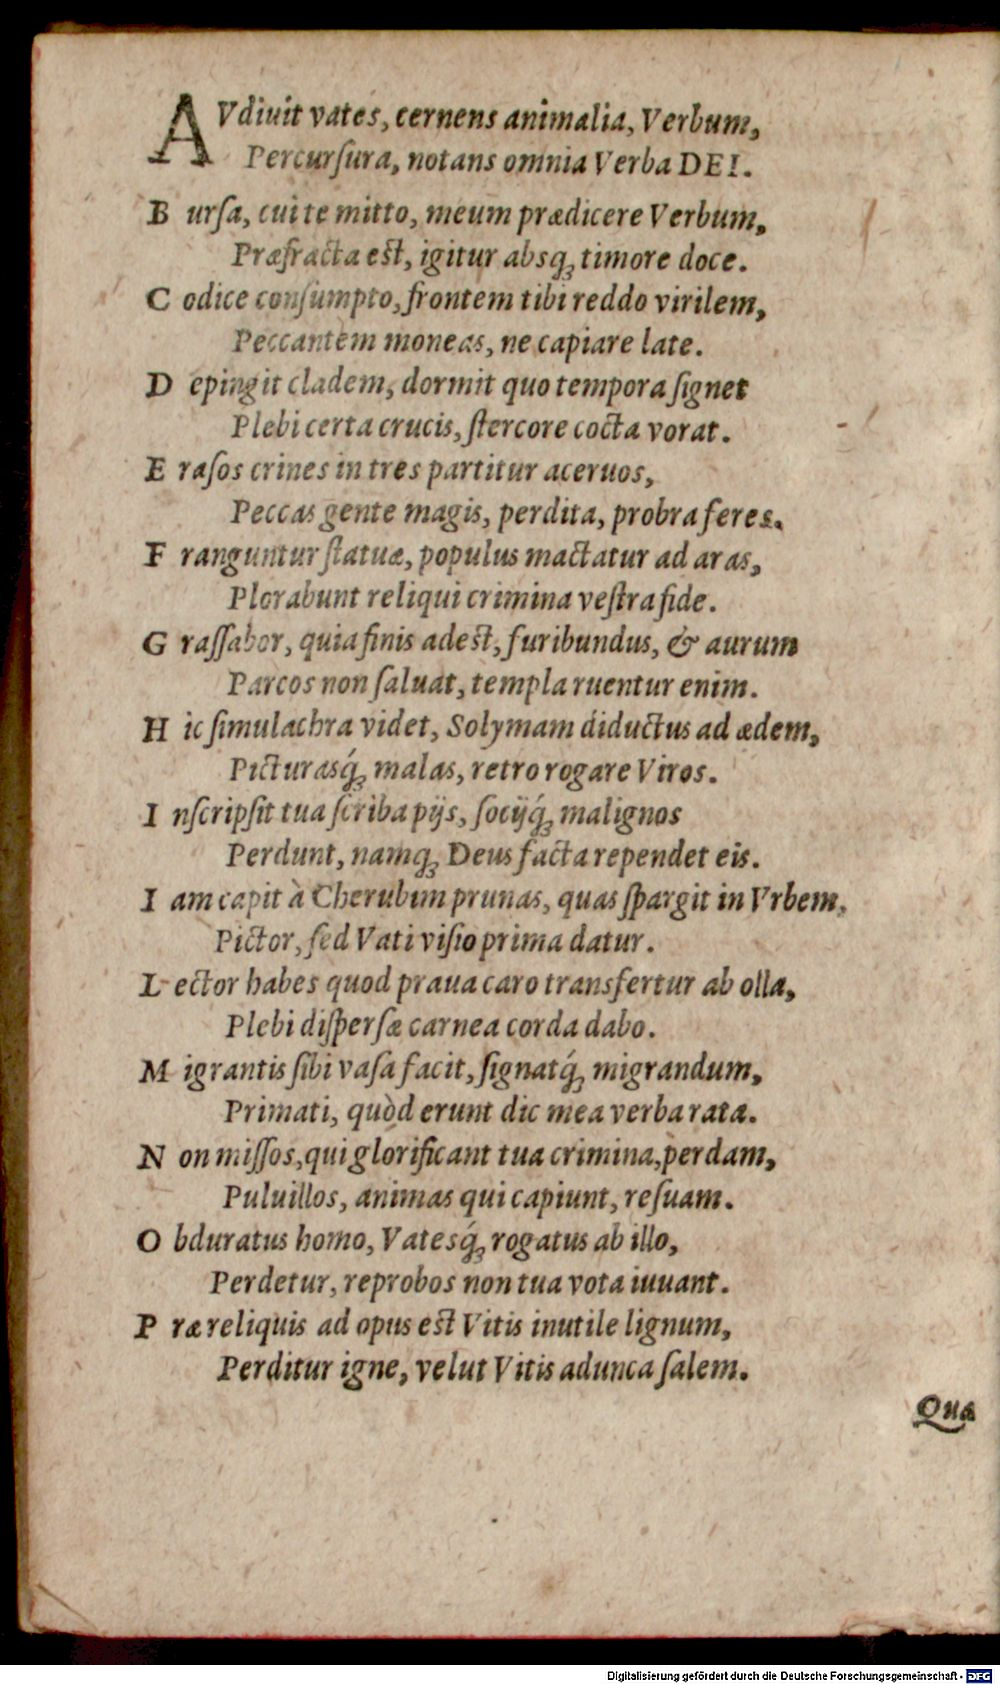 AVdiuit vates, cernens animalia, Verbum,
Percurſura, notans omnia Verba DEI.
B urſa, cui te mitto, meum prædicere Verbum,
Præfracta est, igitur absq; timore doce.
C odice conſumpto, frontem tibi reddo virilem,
Peccantem moneas, ne capiare late.
D epingit cladem, dormit quo tempora ſignet
Plebi certa crucis, ſtercore cocta vorat.
E raſos crines in tres partitur aceruos,
Peccas gente magis, perdita, probra feres.
F ranguntur ſtatuæ, populus mactatur ad aras,
Plorabunt reliqui crimina veſtra fide.
G raſſabor, quia finis adest, furibundus, & aurum
Parcos non ſaluat, templa ruentur enim.
H ic ſimulachra videt, Solymam diductus ad ædem,
Picturasq́; malas, retro rogare Viros.
I nſcripſit tua ſcriba pijs, ſocijq́; malignos
Perdunt, namq; Deus facta rependet eis.
I am capit à Cherubim prunas, quas ſpargit in Vrbem,
Pictor, ſed Vati viſio prima datur.
L ector habes quod praua caro transfertur ab olla,
Plebi diſperſæ carnea corda dabo.
M igrantis ſibi vaſa facit, ſignatq́; migrandum,
Primati, quòd erunt dic mea verba rata.
N on miſſos, qui glorificant tua crimina, perdam,
Puluillos, animas qui capiunt, reſuam.
O bduratus homo, Vatesq́; rogatus ab illo,
Perdetur, reprobos non tua vota iuuant.
P ræ reliquis ad opus est Vitis inutile lignum,
Perditur igne, velut Vitis adunca ſalem.
Quæ
Digitalisierung gefördert durch die Deutsche Forschungsgemeinschaft - DFG